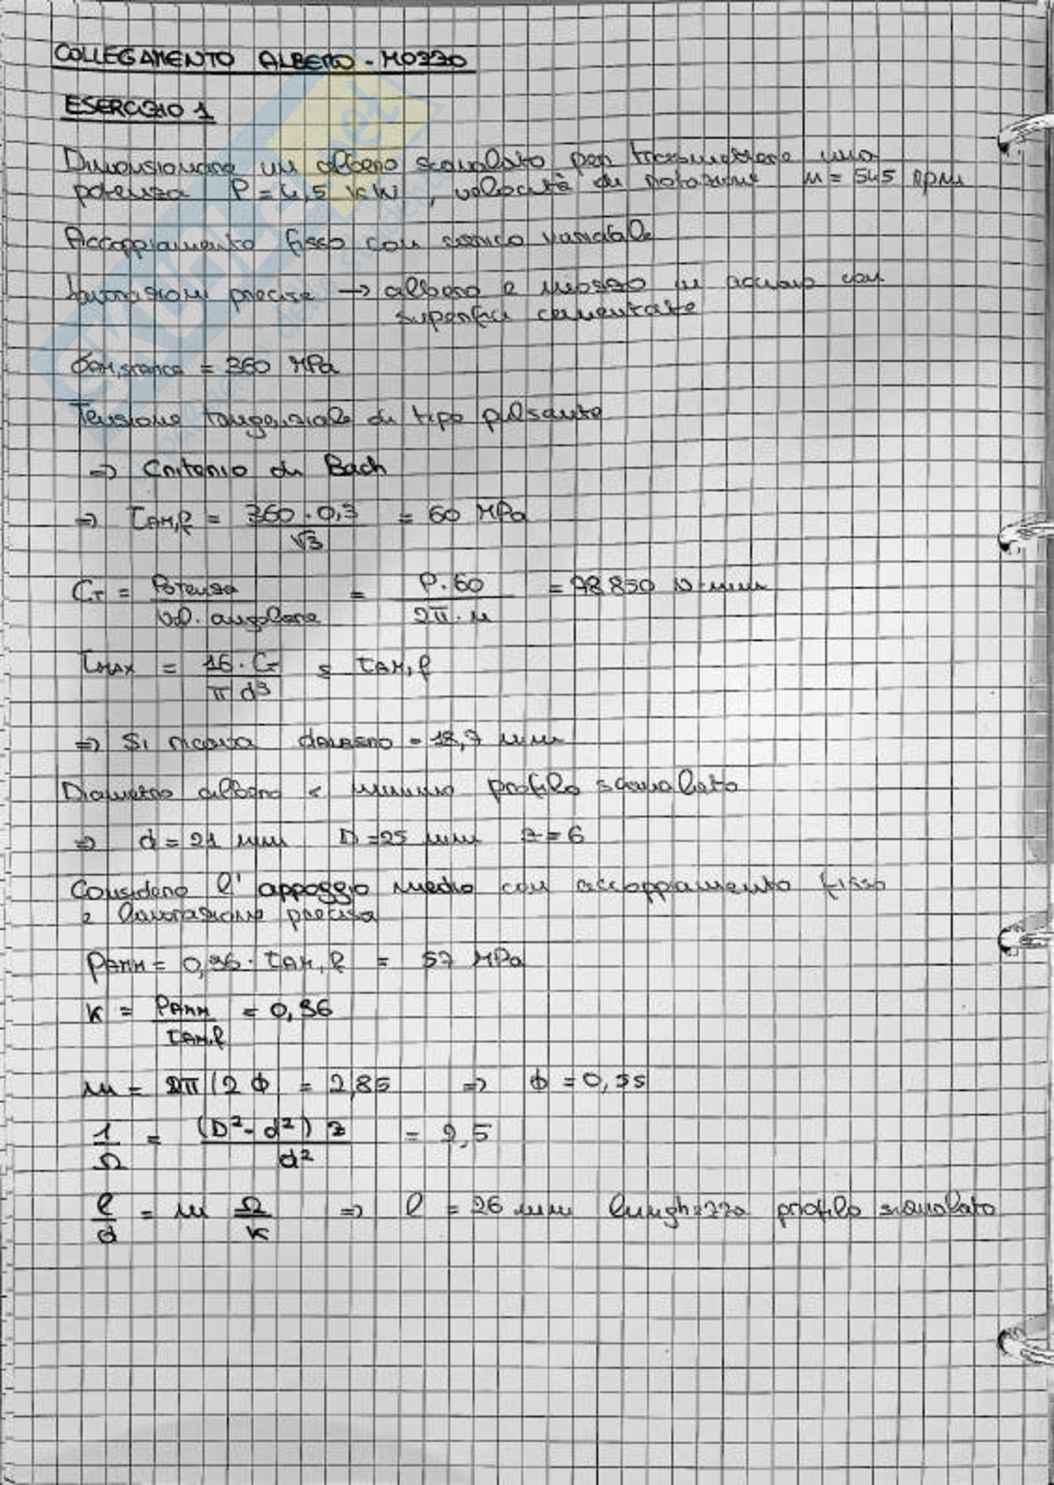 COLLEGAMENTO ALBERO - MOZZO
ESERCIZIO 1
Dimensionare un albero scanalato per trasmettere una
potenza P = 4,5 kW , velocità di rotazione n = 545 rpm
Accoppiamento fisso con carico variabile
Lavorazioni precise → albero e mozzo in acciaio con
superfici cementate
σAM,statica = 360 MPa
Tensione tangenziale di tipo pulsante
⇒ Criterio di Bach
⇒ τAM,f = 360 · 0,3 / √3 = 60 MPa
CT = Potenza / Vel. angolare = P · 60 / 2π · n = 78850 N·mm
τMAX = 16 · CT / π d³ ≤ τAM,f
⇒ Si ricava dALBERO = 18,7 mm
Diametro albero < minimo profilo scanalato
⇒ d = 21 mm D = 25 mm z = 6
Considero l' appoggio medio con accoppiamento fisso
e lavorazione precisa
PAMM = 0,96 · τAM,f = 57 MPa
K = PAMM / τAM,f = 0,96
m = 2π / 2 ϕ = 2,85 ⇒ ϕ = 0,55
1 / Ω = (D² - d²) z / d² = 2,5
l / d = m Ω / K ⇒ l = 26 mm lunghezza profilo scanalato